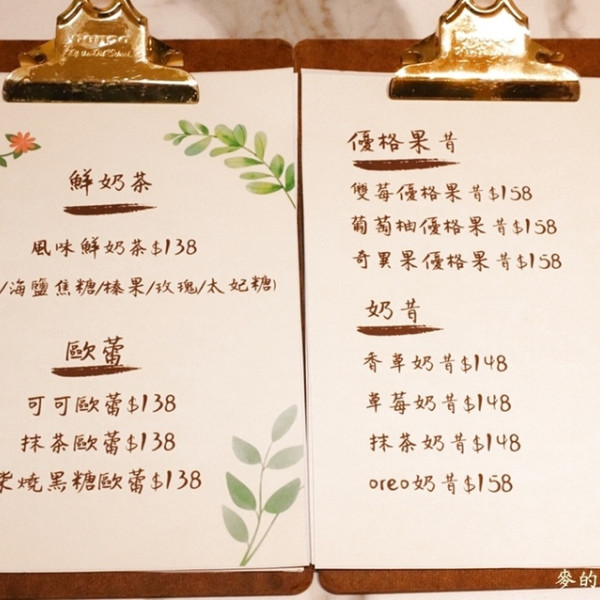 鮮奶茶
風味鮮奶茶$138
/海鹽焦糖/榛果/玫瑰/太妃糖)
歐蕾
可可歐蕾$138
抹茶歐蕾$138
柴燒黑糖歐蕾$138
優格果昔
雙莓優格果昔$158
葡萄柚優格果昔$158
奇異果優格果昔$158
奶昔
香草奶昔$148
草莓奶昔$148
抹茶奶昔$148
oreo奶昔$158
麥的